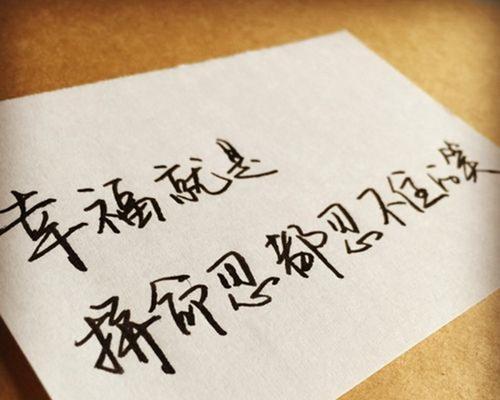 幸福就是
拼命忍都忍不住